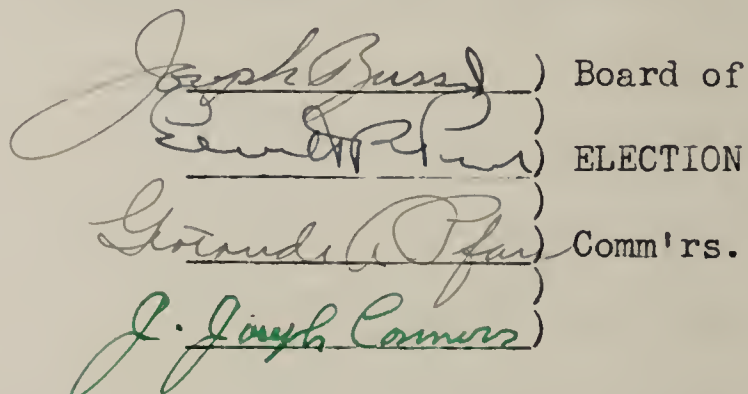 Joseph ) Board of
)
) ELECTION
)
Gertrude A. ) Comm'rs.
)
J. Joseph Connors )